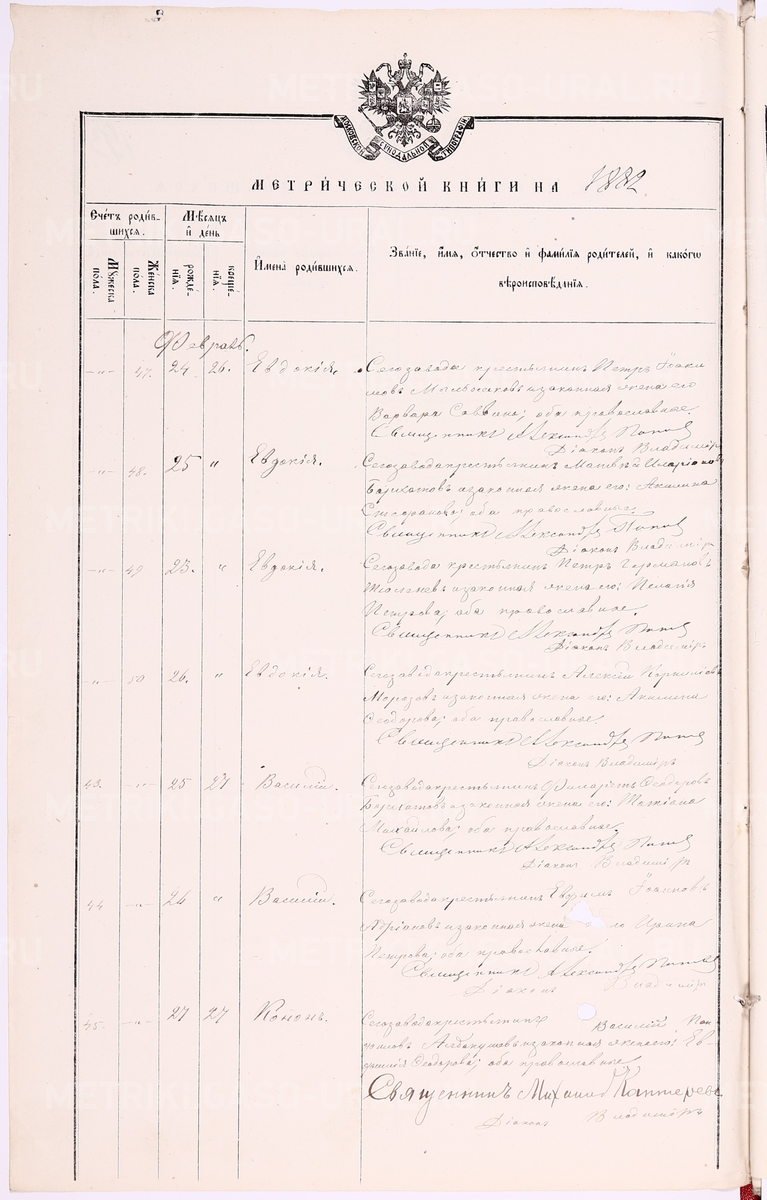 МОСКОВСКОЙ СУНОДАЛЬНОЙ ТИПОГРАФІИ
МЕТРИ́ЧЕСКОЙ КНИ́ГИ НА 1882
Счéтъ роди́в-
шихся.
Мꙋ́жеска по́ла.
Же́нска по́ла.
Мѣ́сяцъ
и҆ де́нь
рожде́-
нїѧ.
креще́-
нїѧ.
И҆мена̀ роди́вшихся.
Зва́нїе, и҆́мѧ, ѻ҆́тчество и҆ фами́лїѧ роди́телей, и҆ како́гѡ
вѣроисповѣ́данїѧ.
Февраль.
-"- 47. 24 26. Евдокія. Сегозавода крестьянинъ Петръ Іоаки
мовъ и законная жена его
Варвара Саввина; оба православные.
Священникъ Александръ Попов
Діаконъ Владиміръ
-"- 48. 25 " Евдокія. Сегозавода крестьянинъ Матвѣй Иларіоновъ
и законная жена его: Акилина
оба православные.
Священникъ Александръ Попов
Діаконъ Владиміръ
-"- 49 23. " Евдокія. Сегозавода крестьянинъ Петръ Германовъ
и законная жена его: Пелагія
Петрова; оба православные.
Священникъ Александръ Попов
Діаконъ Владиміръ
-"- 50 26. " Евдокія. Сегозавода крестьянинъ Алексій Корниловъ
Морозовъ и законная жена его: Акилина
Ѳеодорова; оба православные.
Священникъ Александръ Попов
Діаконъ Владиміръ
43. -"- 25 27 Василій. Сегозавода крестьянинъ Филаретъ Ѳеодоровъ
и законная жена его: Татіана
Михайлова; оба православные.
Священникъ Александръ Попов
Діаконъ Владиміръ
44 -"- 24 " Василій. Сегозавода крестьянинъ Евѳимъ Іоанновъ
Адріановъ и законная жена его Ирина
Петрова; оба православные.
Священникъ Александръ Попов
Діаконъ Владиміръ
45. -"- 27 27 Кононъ. Сегозавода крестьянинъ Василій
и законная жена его: Ев-
Ѳеодорова; оба православные
Священникъ Михаилъ Каптеревъ
Діаконъ Владиміръ